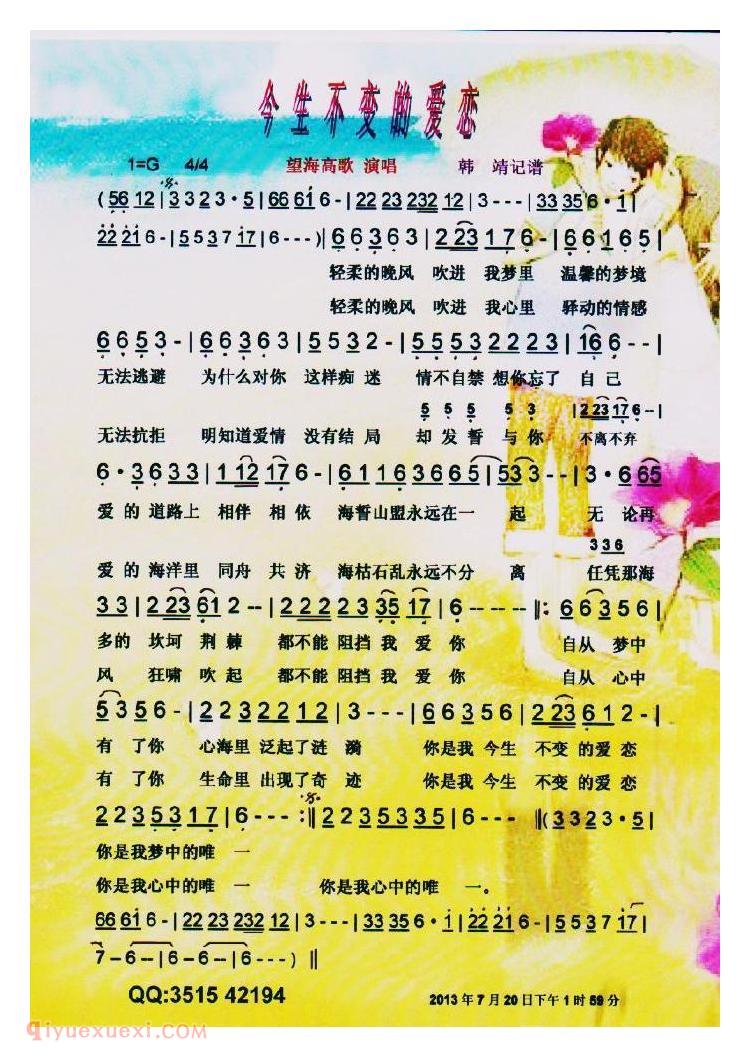 今生不变的爱恋
1=G 4/4 望海高歌 演唱 韩 靖记谱
( 56 12 | 3 3 2 3 · 5 | 66 61 6 - | 22 23 232 12 | 3 - - - | 33 35 6 · i |
22 21 6 - | 5 5 3 7 17 | 6 - - - ) | 6 6 3 6 3 | 2 23 1 7 6 - | 6 6 1 6 5 |
轻柔的晚风 吹进 我梦里 温馨的梦境
轻柔的晚风 吹进 我心里 驿动的情感
6 6 5 3 - | 6 6 3 6 3 | 5 5 3 2 - | 5 5 5 3 2 2 2 3 | 16 6 - - |
无法逃避 为什么对你 这样痴 迷 情不自禁 想你忘了 自 己
5 5 5 5 3 | 2 23 17 6 - - |
无法抗拒 明知道爱情 没有结 局 却 发 誓 与 你 不离不弃
6 · 3 6 3 3 | 1 12 17 6 - | 6 1 1 6 3 6 6 5 | 53 3 - - | 3 · 6 65
爱 的 道路上 相伴 相 依 海誓山盟永远在一 起 无 论再
3 3 6
爱 的 海洋里 同舟 共 济 海枯石乱永远不分 离 任凭那海
3 3 | 2 23 61 2 - - | 2 2 2 2 3 35 17 | 6 - - - - | : 6 6 3 5 6 |
多的 坎坷 荆 棘 都不能 阻挡 我 爱 你 自从 梦中
风 狂啸 吹 起 都不能 阻挡 我 爱 你 自从 心中
5 3 5 6 - | 2 2 3 2 2 1 2 | 3 - - - | 6 6 3 5 6 | 2 23 6 1 2 - |
有 了你 心海里 泛起了涟 漪 你是我 今生 不变 的爱 恋
有 了你 生命里 出现了奇 迹 你是我 今生 不变 的爱 恋
2 2 3 5 3 1 7 | 6 - - - :‖ 2 2 3 5 3 3 5 | 6 - - - ‖( 3 3 2 3 · 5 |
你是我梦中的唯 一
你是我心中的唯 一 你是我心中的唯 一。
66 61 6 - | 22 23 232 12 | 3 - - - | 33 35 6 · i | 22 21 6 - | 5 5 3 7 17 |
7 - 6 - - | 6 - 6 - - | 6 - - - ) ‖
QQ:3515 42194 2013 年 7 月 20 日下午 1 时 59 分
qiyuexuexi.COM